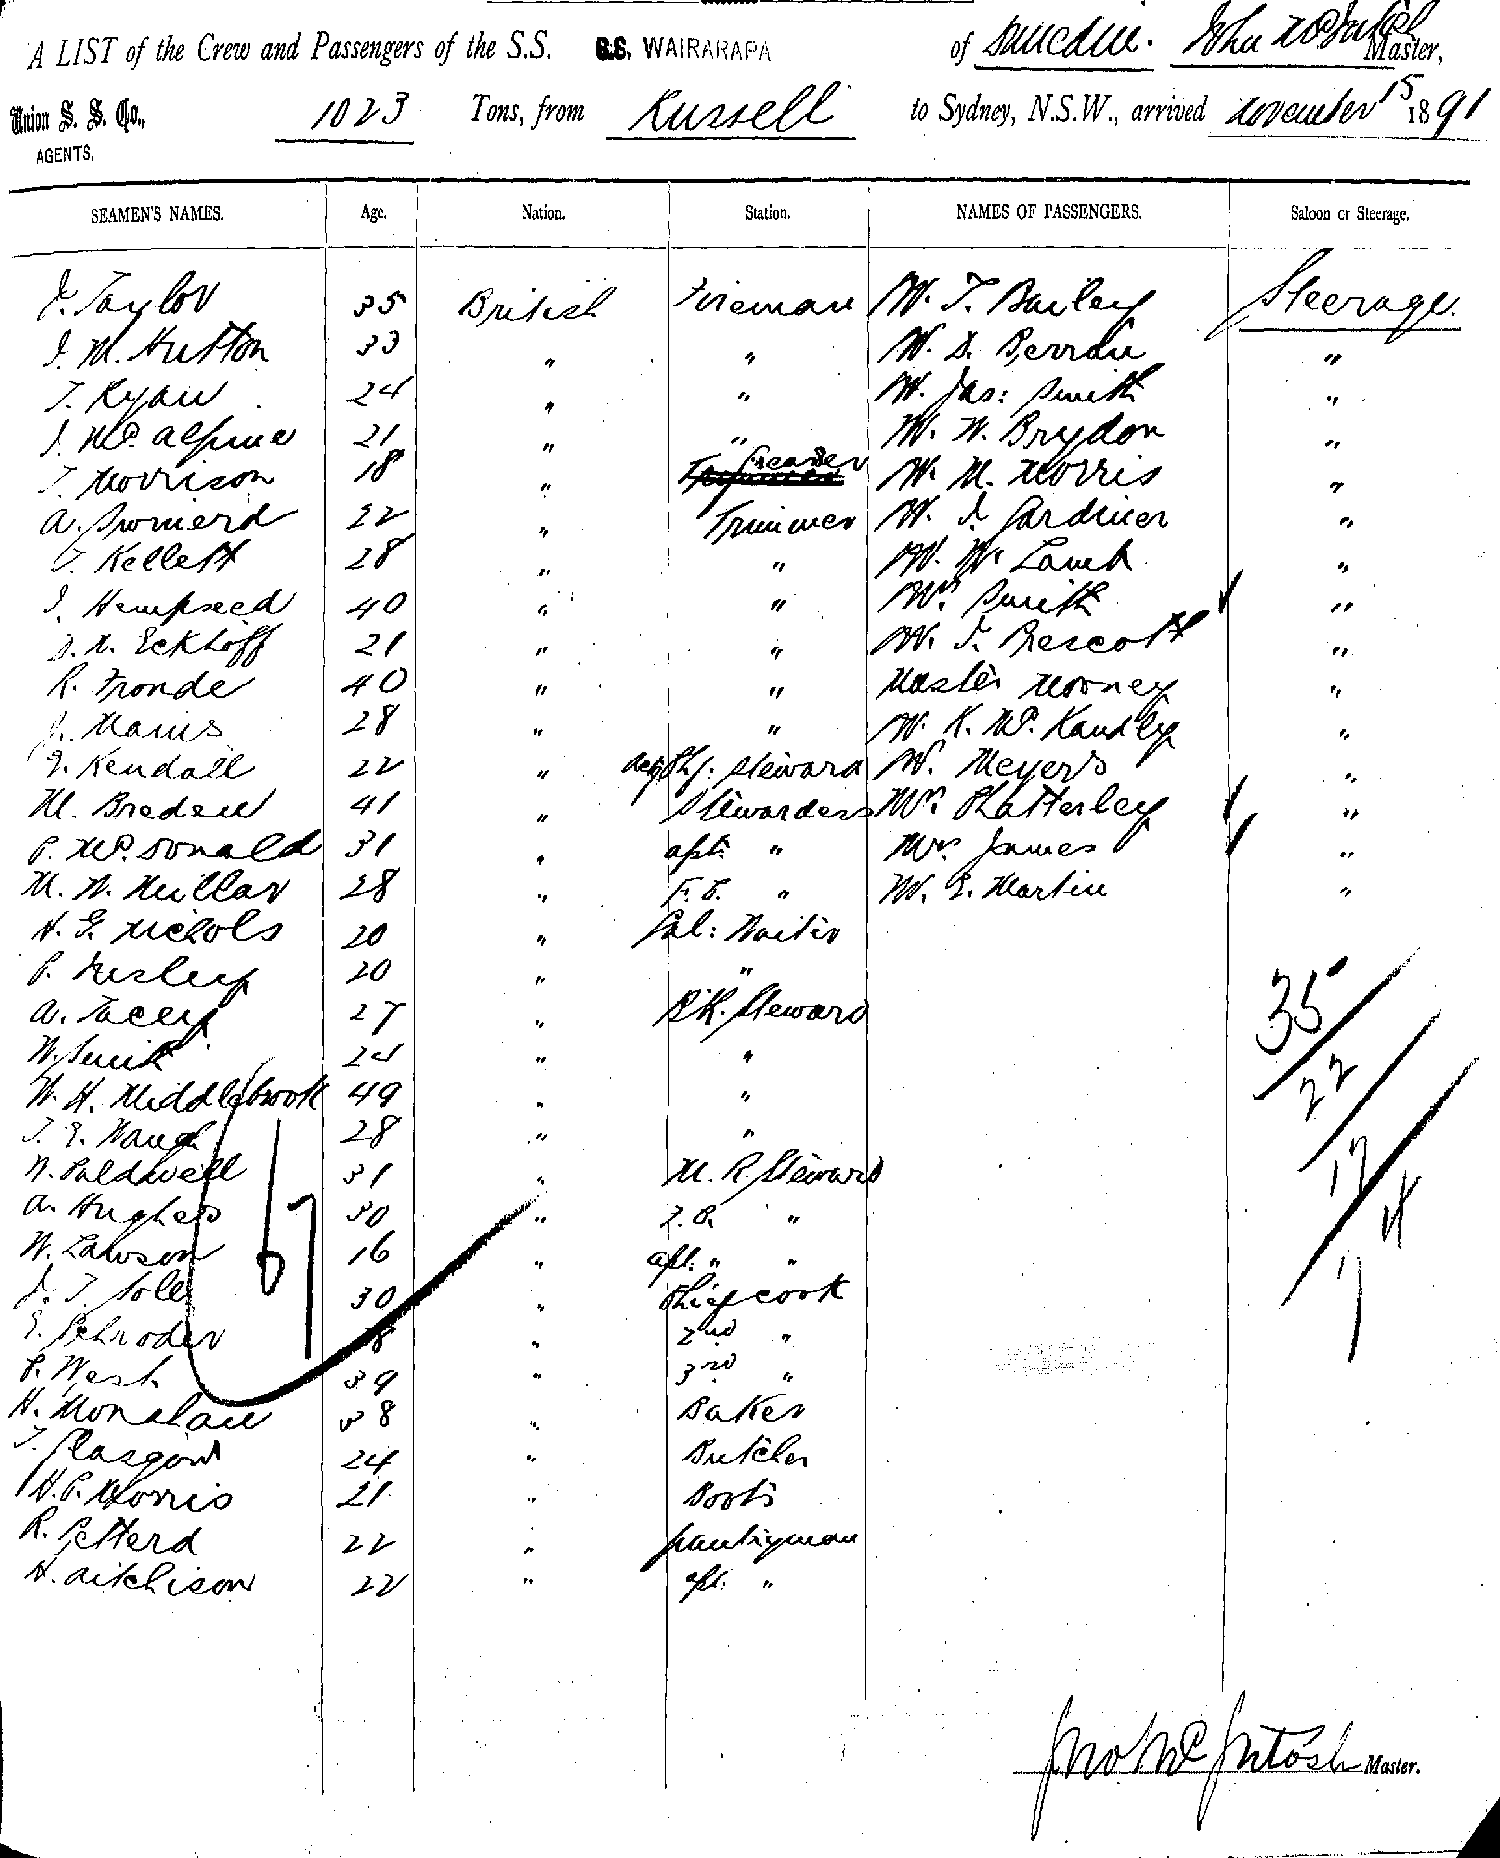 A LIST of the Crew and Passengers of the S.S. S.S. WAIRARAPA of Dunedin. John McIntosh Master,
Union S. S. Co., 1023 Tons, from Russell to Sydney, N.S.W., arrived November 15 1891
AGENTS.
SEAMEN'S NAMES. Age. Nation. Station. NAMES OF PASSENGERS. Saloon or Steerage.
J. Taylor 35 British Fireman Mr. T. Bailey Steerage.
J. M. Hutton 33 " " Mr. D. "
T. Ryan 24 " " Mr. Jas: Smith "
J. McAlpine 21 " " Mr. W. Brydon "
T. Morrison 18 " Greaser Mr. M. Morris "
A. 22 " Trimmer Mr. J. Gardiner "
T. Kellett 28 " " Mr. Wm Lamb "
J. Hempseed 40 " " Mrs. Smith "
D. N. Eckhoff 21 " " Mr. J. Prescott "
R. Fronde 40 " " Master Mooney "
J. 28 " " Mr. K. "
E. Kendall 22 " Steward Mr. Meyers "
M. Breden 41 " Stewardess Mrs. Chatterley "
P. McDonald 31 " asst. " Mrs. James "
M. W. Millar 28 " F.C. " Mr. E. Martin "
H. E. Nichols 20 " Sal: Waiter
P. 20 " "
A. Tacey 27 " B.R. Steward
W. Smith 24 " "
W. H. Middlebrook 49 " "
T. E. Waugh 28 " "
W. Caldwell 31 " M. R Steward
A. Hughes 30 " "
W. Lawson 16 " asst. " "
J. T. Sole 30 " Chief cook
E. Schroder 8 " 2nd "
P. West 39 " 3rd "
H. 38 " Baker
T. Glasgow 24 " Butcher
H. P. Morris 21 " Boots
R. Petterd 22 " Pantryman
H. Aitchison 22 " asst. "
35
22
67
Jno McIntosh Master.